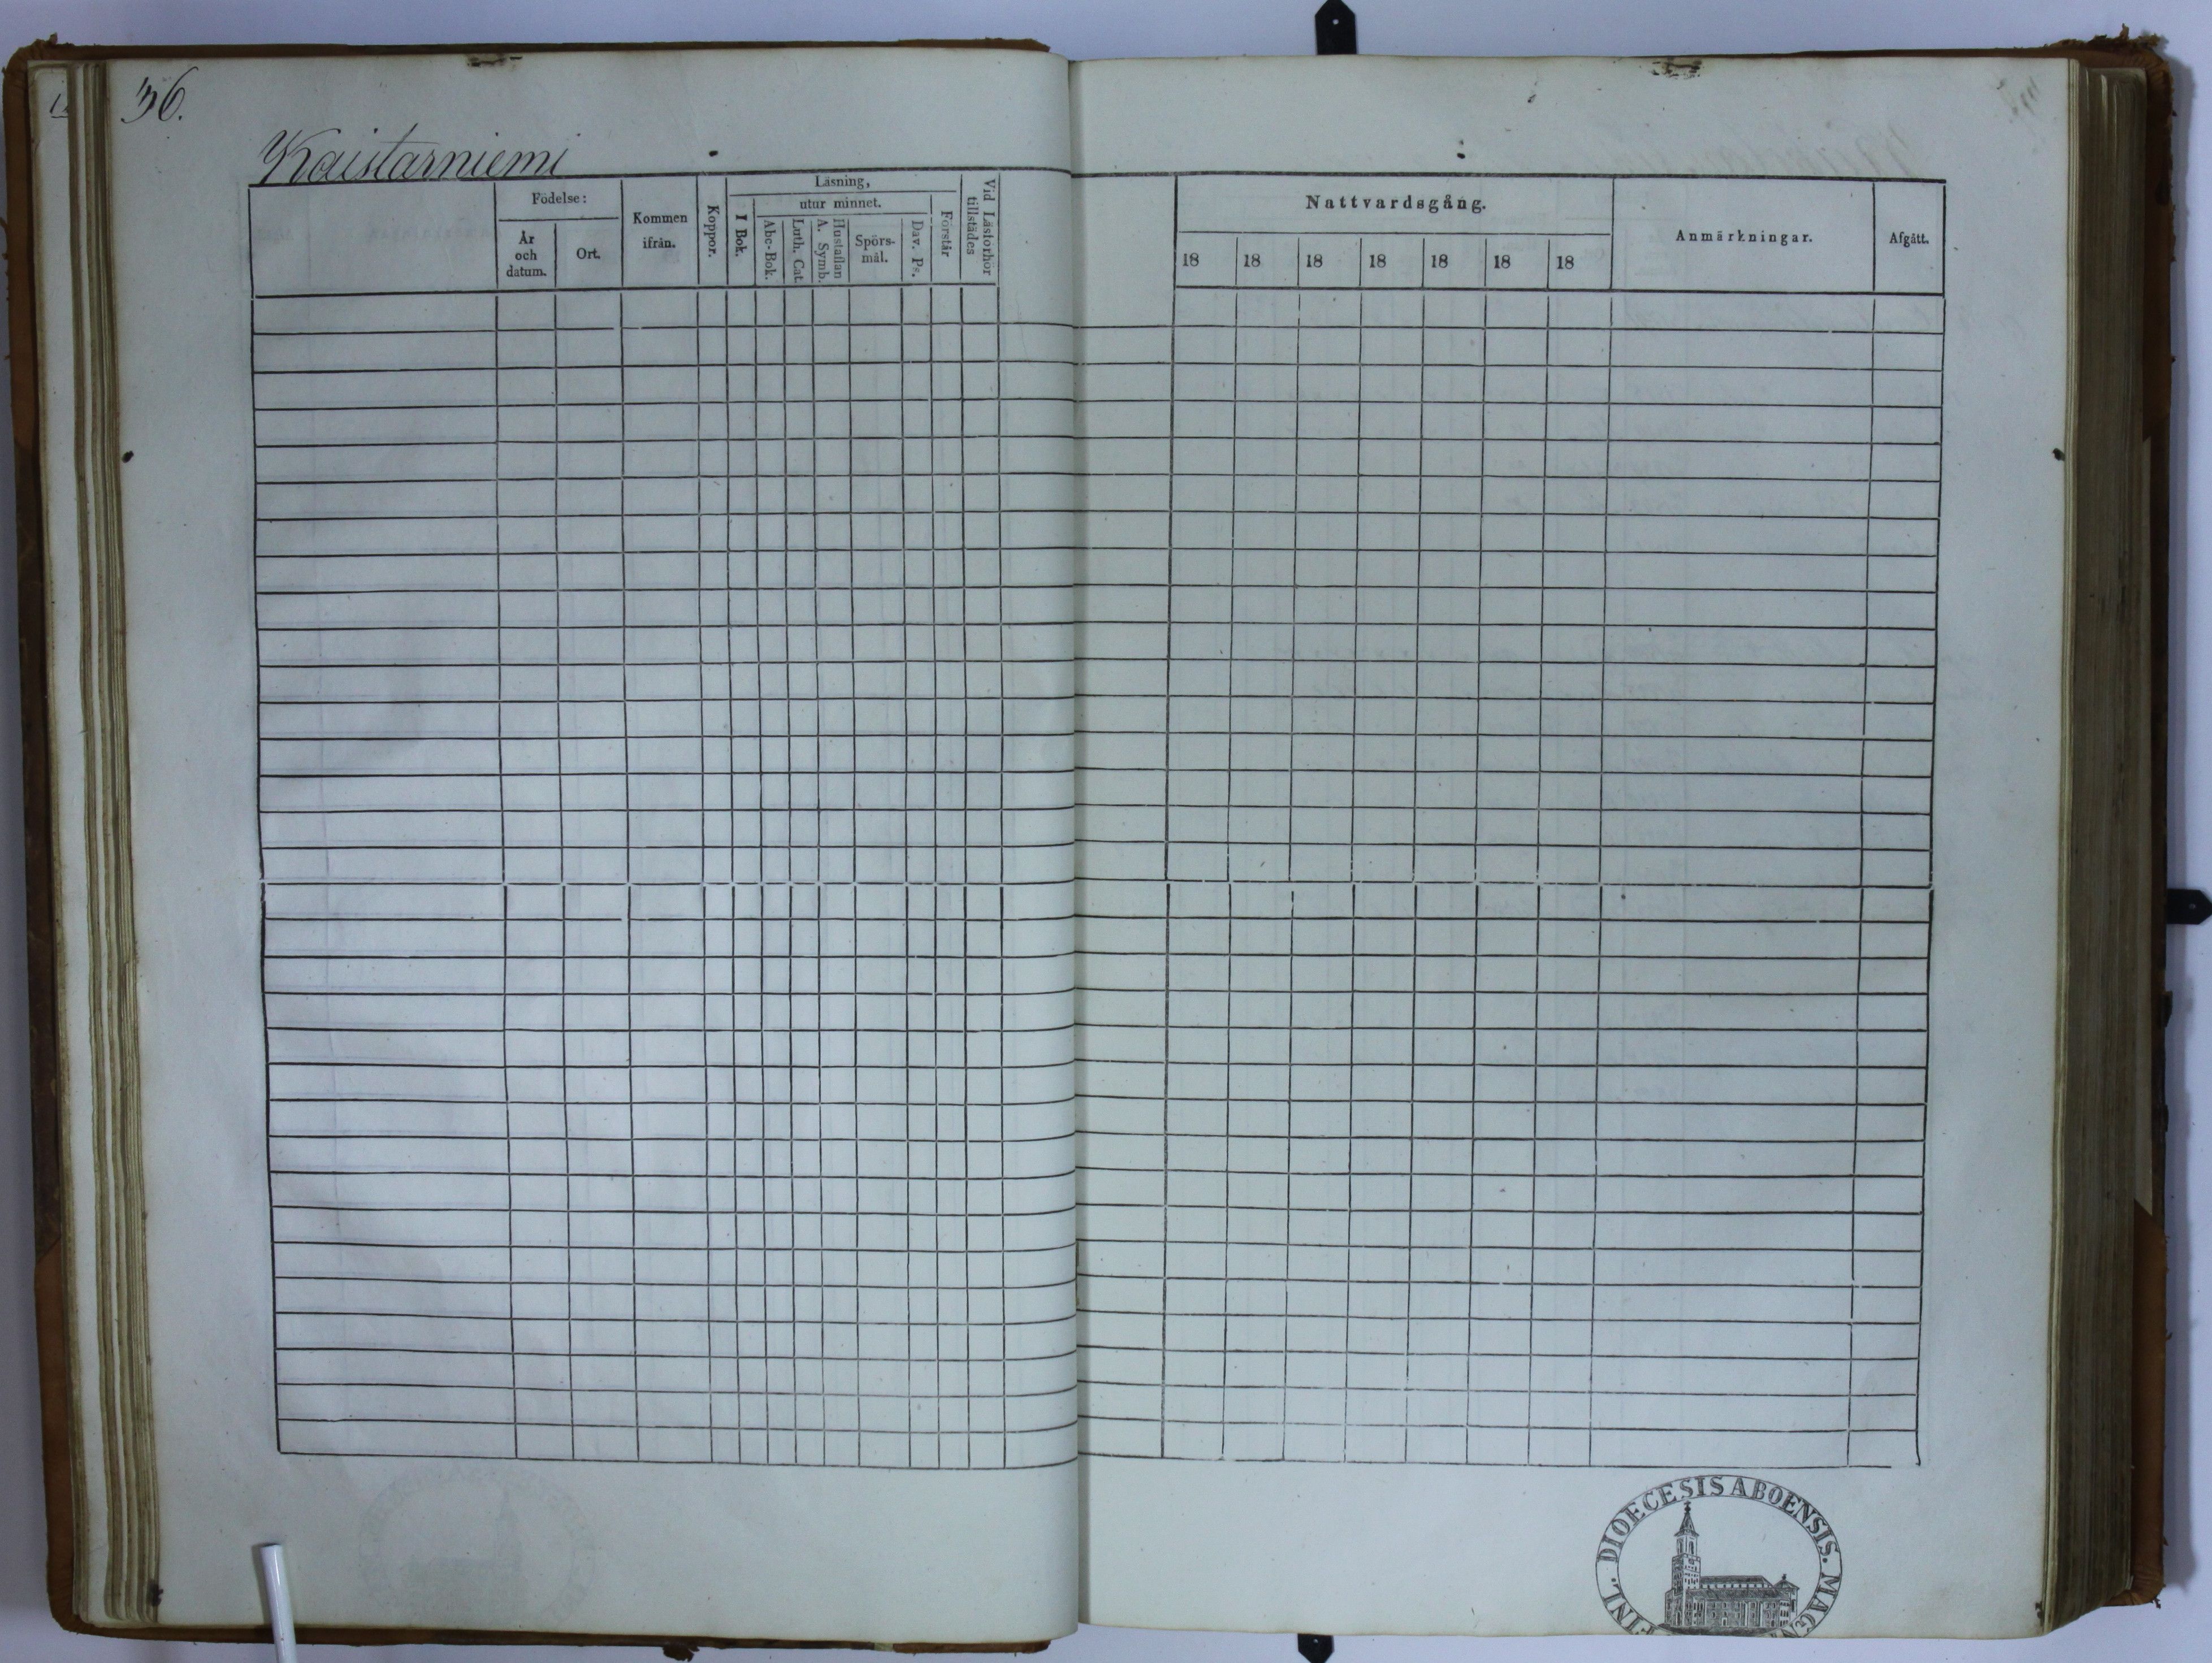 36.
Kaistarniemi
Födelse:
År
och
datum.
Ort.
Kommen
ifrån.
Koppor.
Läsning,
I Bok.
utur minnet.
Abc-Bok.
Luth. Cat.
Hustaflan
A. Symb.
Spörs-
mål.
Dav. Ps.
Förstår
Vid Läsförhör
tillstädes
Nattvardsgång.
18 18 18 18 18 18 18
Anmärkningar.
Afgått.
DIOECESIS ABOENSIS. MAGN
FINL.